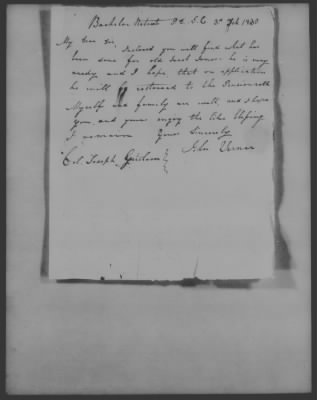 Bachelor Retreat P.C. S.C. 3d Feb 1830
My Dear Sir,
Inclosed you will find what has
been done for old Jones. he is very
needy and I hope that on application
he will be restored to the Pension roll
Myself and family are well, and I hope
you and yours enjoy the like blessing
I remain Yours Sincerely
John Verner
Col. Joseph